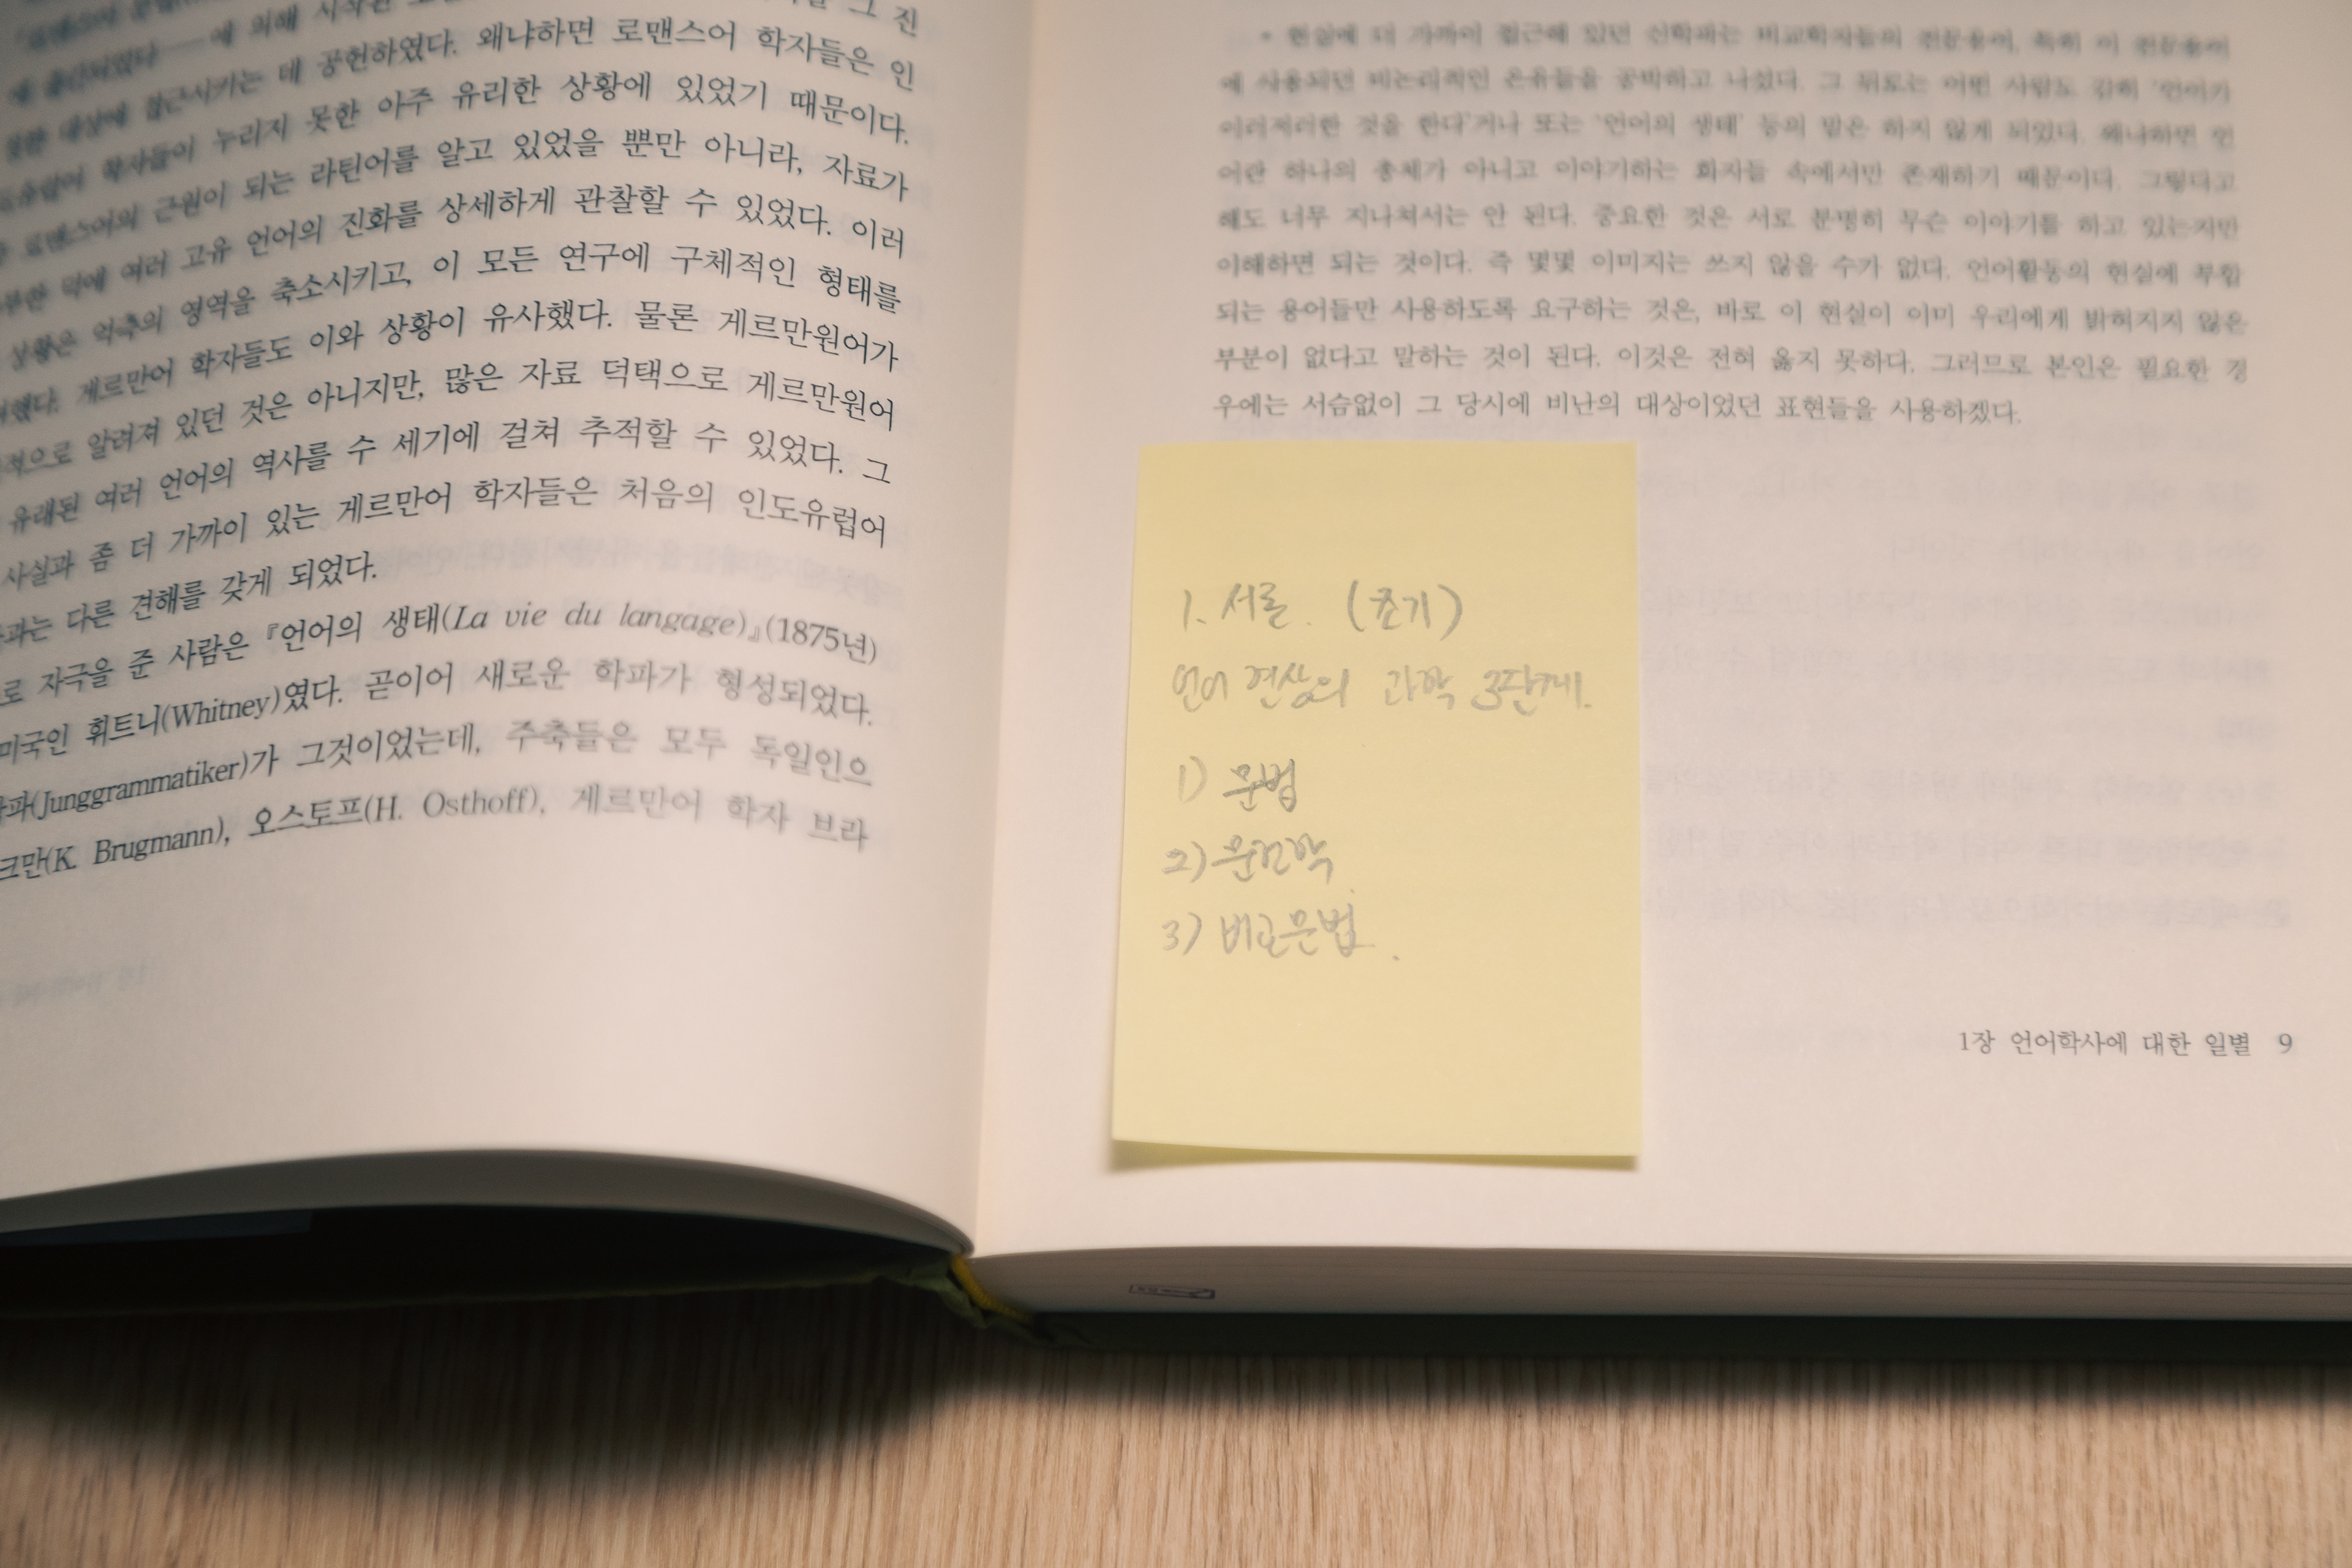 그 진
에 의해
데 공헌하였다. 왜냐하면 로맨스어 학자들은 인
대상에 접근시키는
학자들이 누리지 못한 아주 유리한 상황에 있었기 때문이다.
로맨스어의 근원이 되는 라틴어를 알고 있었을 뿐만 아니라, 자료가
덕에 여러 고유 언어의 진화를 상세하게 관찰할 수 있었다. 이러
상황은 억측의 영역을 축소시키고, 이 모든 연구에 구체적인 형태를
게르만어 학자들도 이와 상황이 유사했다. 물론 게르만원어가
적으로 알려져 있던 것은 아니지만, 많은 자료 덕택으로 게르만원어
유래된 여러 언어의 역사를 수 세기에 걸쳐 추적할 수 있었다. 그
사실과 좀 더 가까이 있는 게르만어 학자들은 처음의 인도유럽어
과는 다른 견해를 갖게 되었다.
로 자극을 준 사람은 『언어의 생태(La vie du langage)』(1875년)
미국인 휘트니(Whitney)였다. 곧이어 새로운 학파가 형성되었다.
파(Junggrammatiker)가 그것이었는데, 주축들은 모두 독일인으
크만(K. Brugmann), 오스토프(H. Osthoff), 게르만어 학자 브라
* 현실에 더 가까이 접근해 있던 신학파는 비교학자들의 전문용어, 특히 이 전문용어
에 사용되던 비논리적인 은유들을 공박하고 나섰다. 그 뒤로는 어떤 사람도 감히 '언어가
이러저러한 것을 한다'거나 또는 '언어의 생태' 등의 말은 하지 않게 되었다. 왜냐하면 언
어란 하나의 총체가 아니고 이야기하는 화자들 속에서만 존재하기 때문이다. 그렇다고
해도 너무 지나쳐서는 안 된다. 중요한 것은 서로 분명히 무슨 이야기를 하고 있는지만
이해하면 되는 것이다. 즉 몇몇 이미지는 쓰지 않을 수가 없다. 언어활동의 현실에 부합
되는 용어들만 사용하도록 요구하는 것은, 바로 이 현실이 이미 우리에게 밝혀지지 않은
부분이 없다고 말하는 것이 된다. 이것은 전혀 옳지 못하다. 그러므로 본인은 필요한 경
우에는 서슴없이 그 당시에 비난의 대상이었던 표현들을 사용하겠다.
1. 서론. (초기)
언어 현상의 과학 3단계.
1) 문법
2) 문헌학.
3) 비교문법.
1장 언어학사에 대한 일별 9